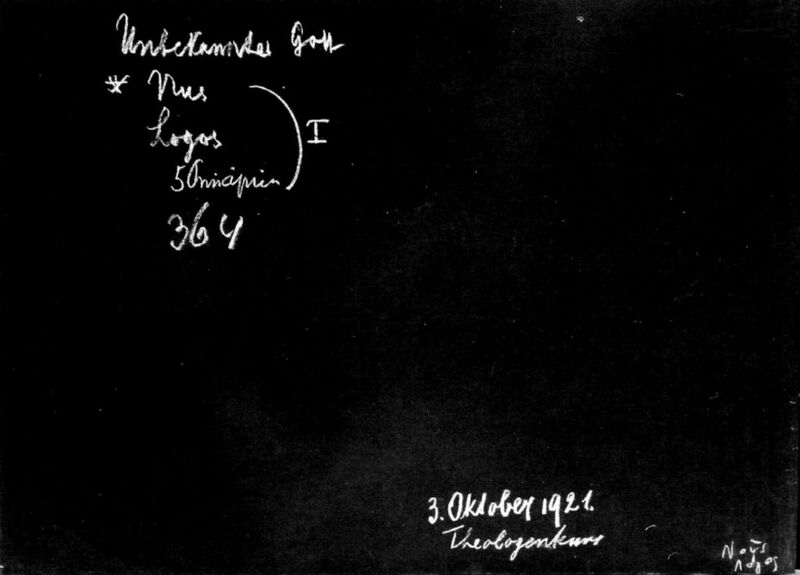 Unbekannter Gott
* Nus
Logos
5 Prinzipien
I
364
3. Oktober 1921.
Theologenkurs
Νοῦς
Λόγος